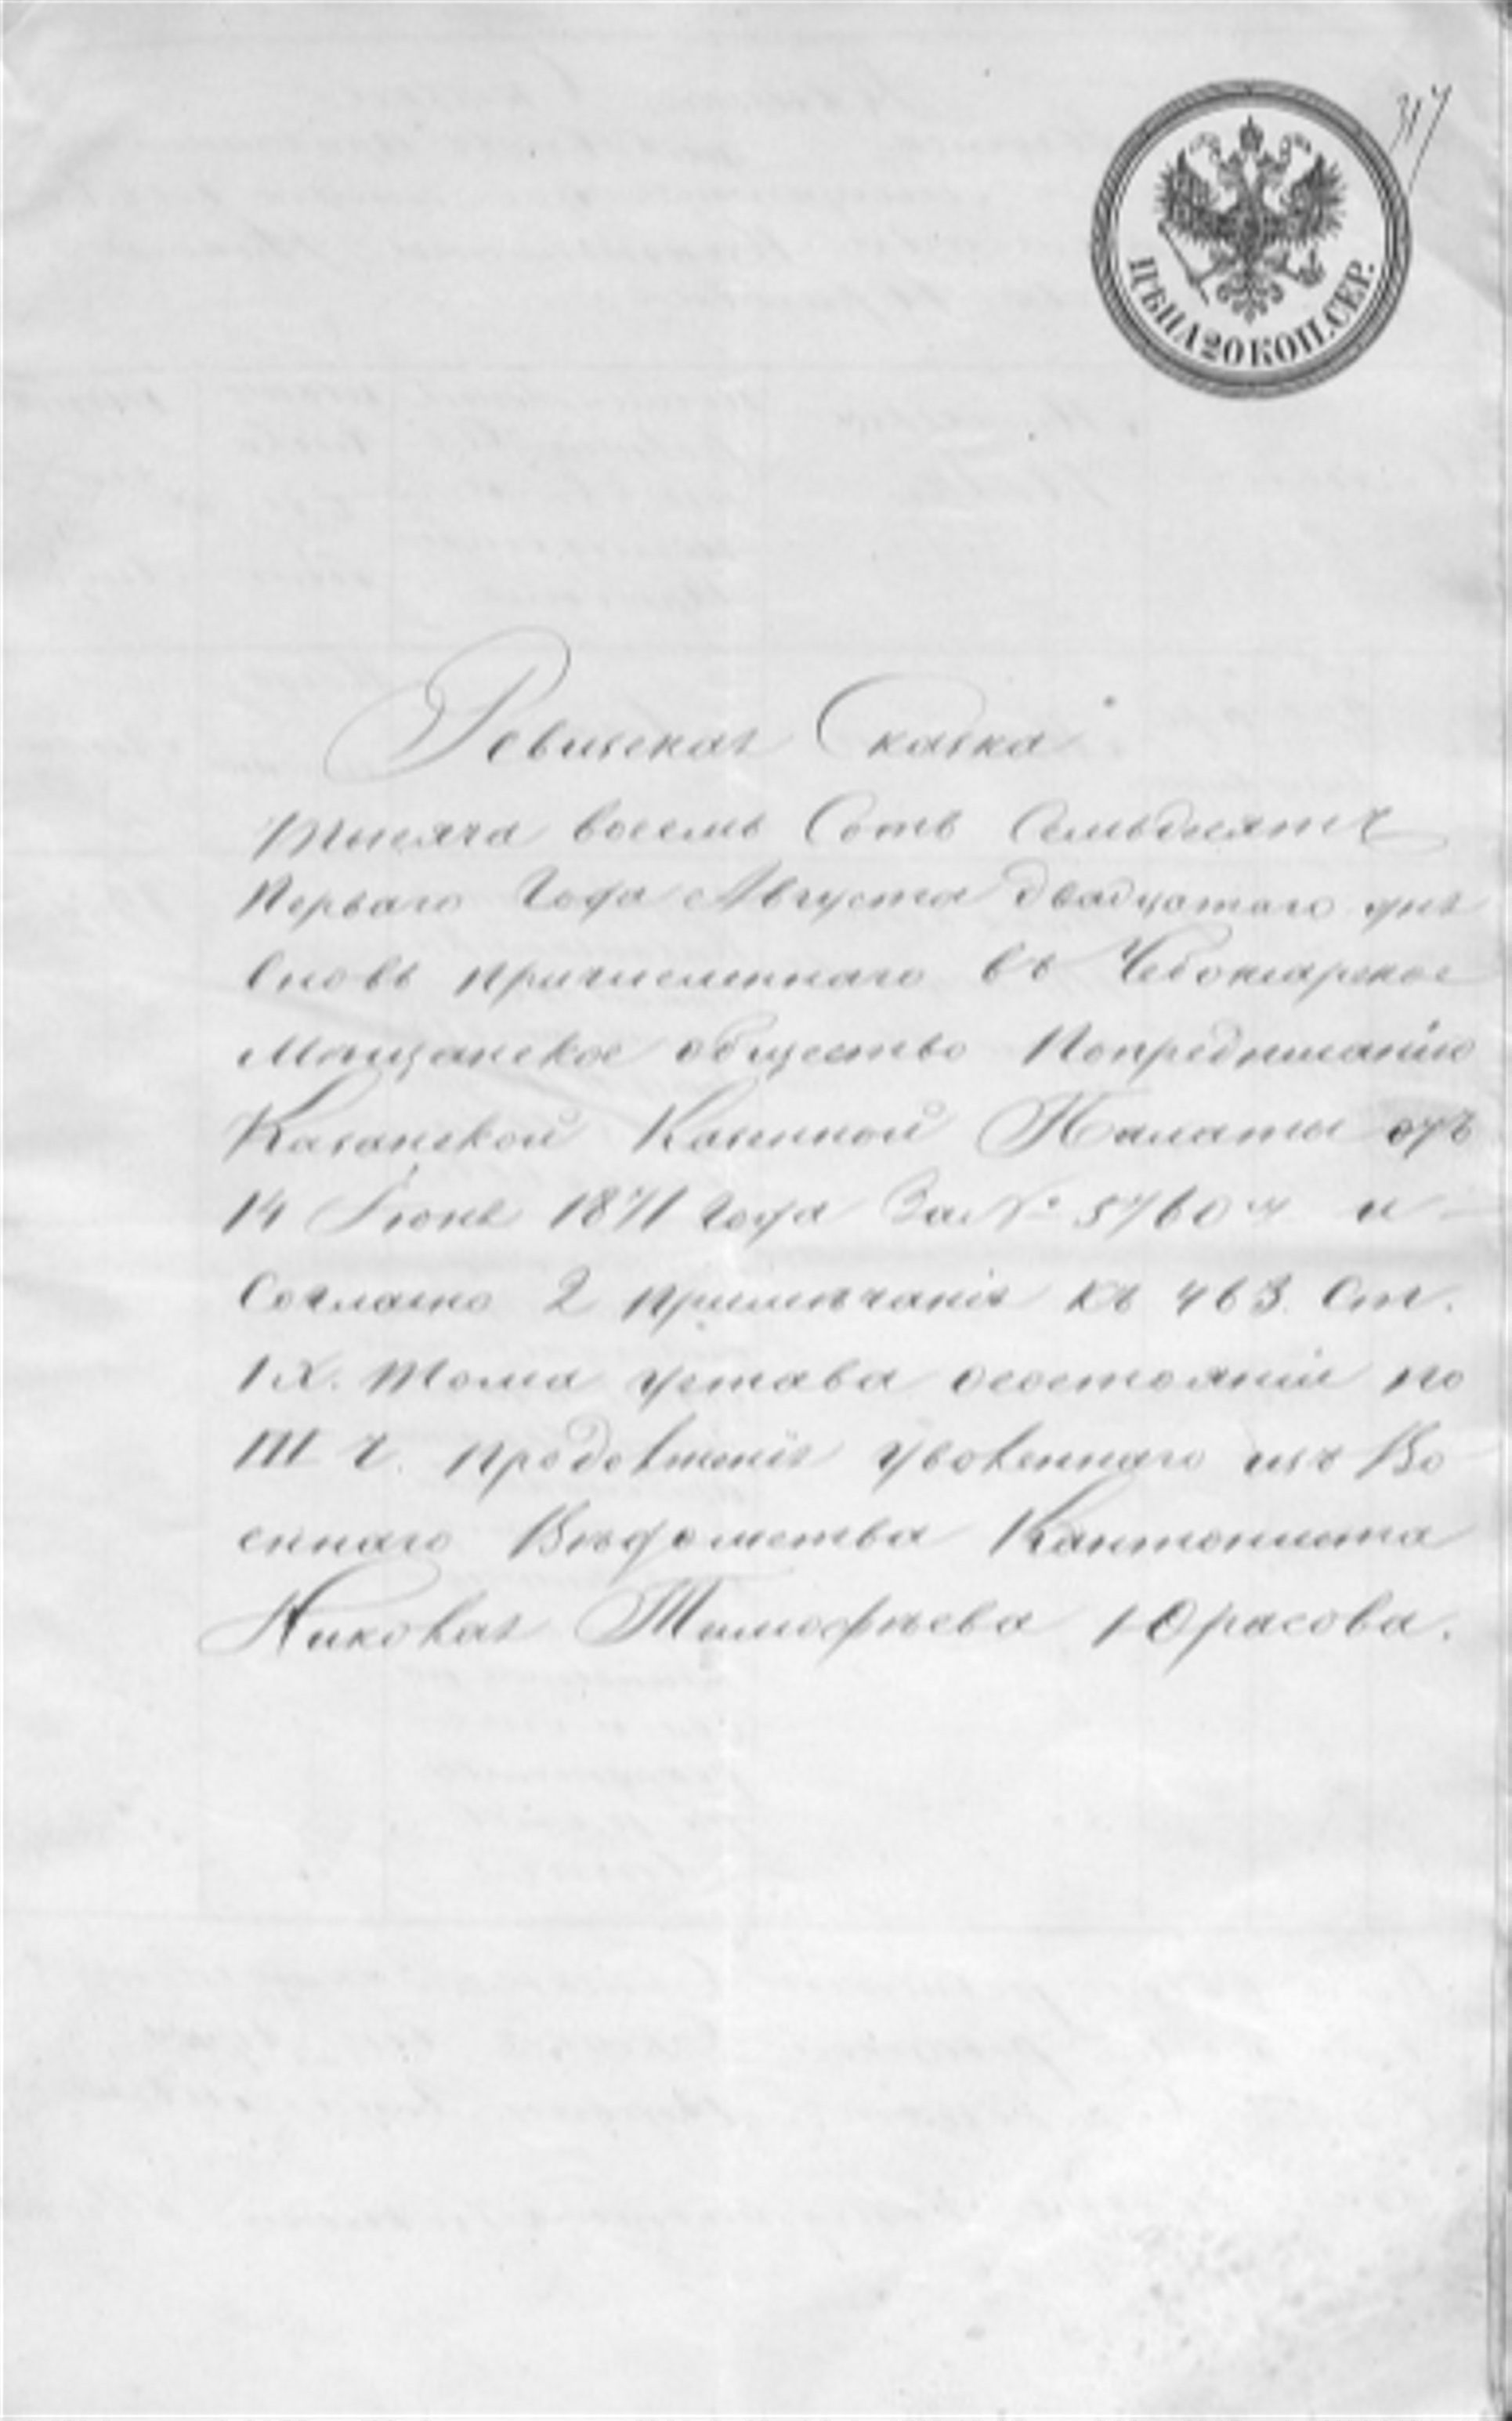 ЦѢНА 20 КОП. СЕР.
Ревизская Сказка
Тысяча восемь Сотъ Семьдесятъ
Перваго Года Августа двадцатого дня
вновь причисленнаго въ Чебоксарское
Мещанское общество Попредписанію
Казанской Казенной Палаты отъ
14 Іюня 1871 Года За №
Согласно 2 примѣчанія къ 463. Ст.
IX. Тома устава осостояніи по
III ч. продолженія уволеннаго изъ Во
еннаго Вѣдомства Кантониста
Николая Тимофѣева Юрасова.